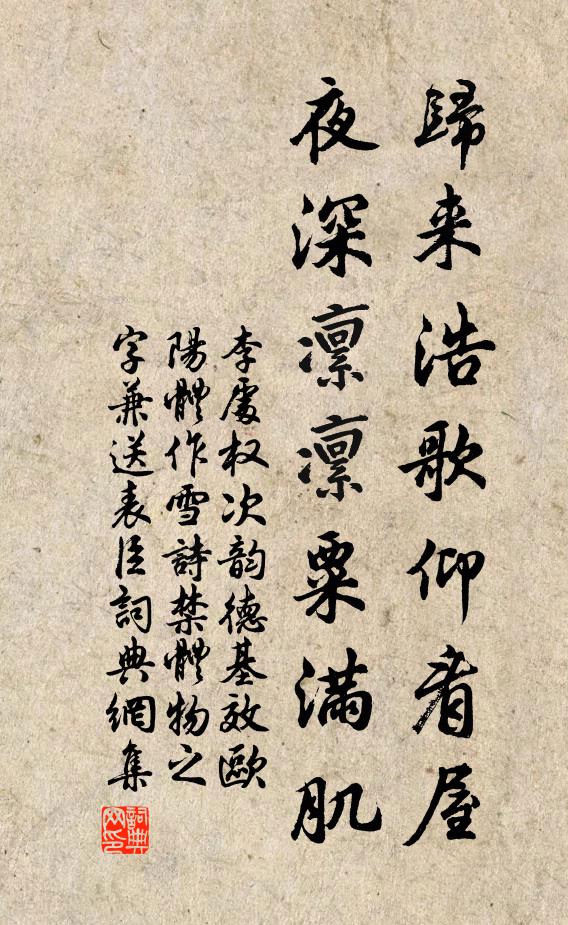 歸来浩歌仰看屋
夜深凛凛粟满肌
李處权次韵德基效歐
陽體作雪詩禁體物之
字兼送表臣詞典網集
詞典
网印